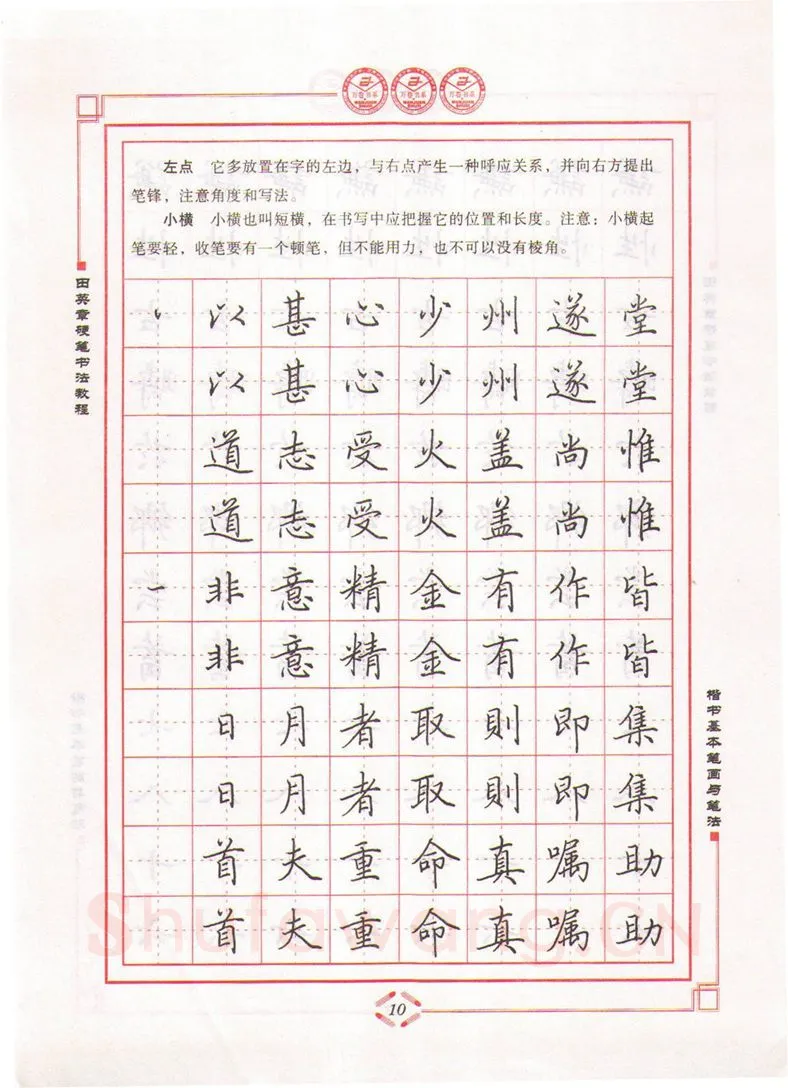 万卷书系 万卷书系 万卷书系
左点 它多放置在字的左边，与右点产生一种呼应关系，并向右方提出
笔锋，注意角度和写法。
小横 小横也叫短横，在书写中应把握它的位置和长度。注意：小横起
笔要轻，收笔要有一个顿笔，但不能用力，也不可以没有棱角。
田英章硬笔书法教程
以甚心少州遂堂
以甚心少州遂堂
道志受火盖尚惟
道志受火盖尚惟
非意精金有作皆
非意精金有作皆
日月者取則即集
日月者取則即集
首夫重命真嘱助
首夫重命真嘱助
楷书基本笔画与笔法
Shufawang.CN
10